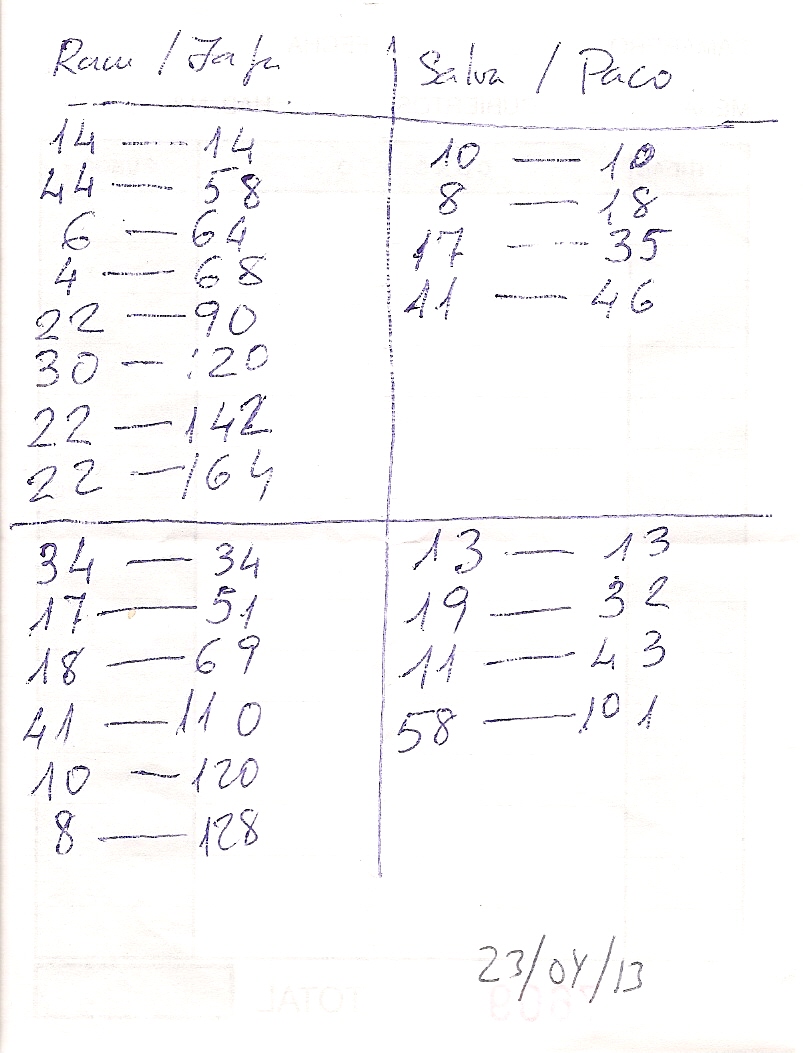 /
14 — 14
44 — 58
6 — 64
4 — 68
22 — 90
30 — 120
22 — 142
22 — 164
Salva / Paco
10 — 10
8 — 18
17 — 35
11 — 46
34 — 34
17 — 51
18 — 69
41 — 110
10 — 120
8 — 128
13 — 13
19 — 32
11 — 43
58 — 101
23/04/13